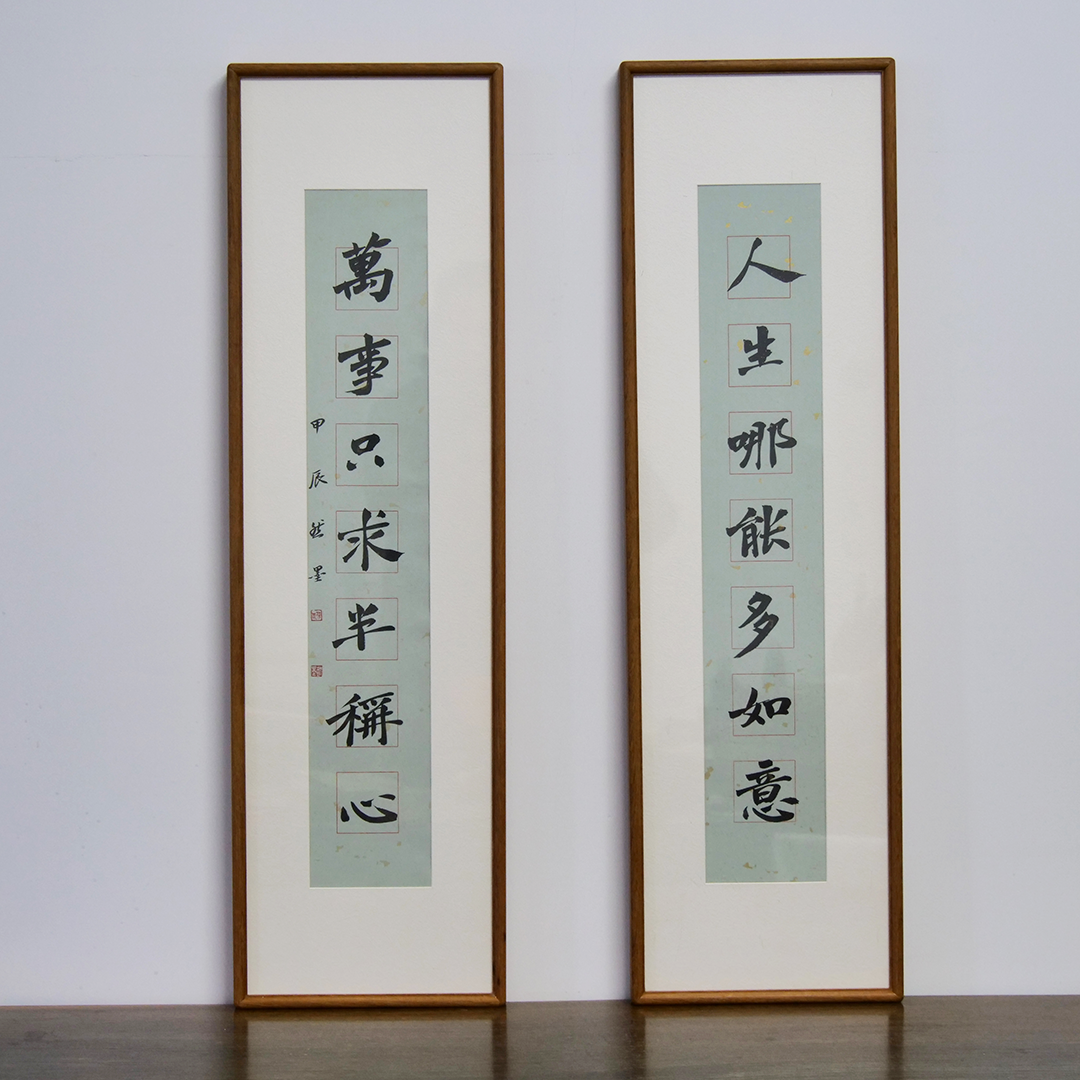 人生哪能多如意
萬事只求半稱心
甲辰然墨